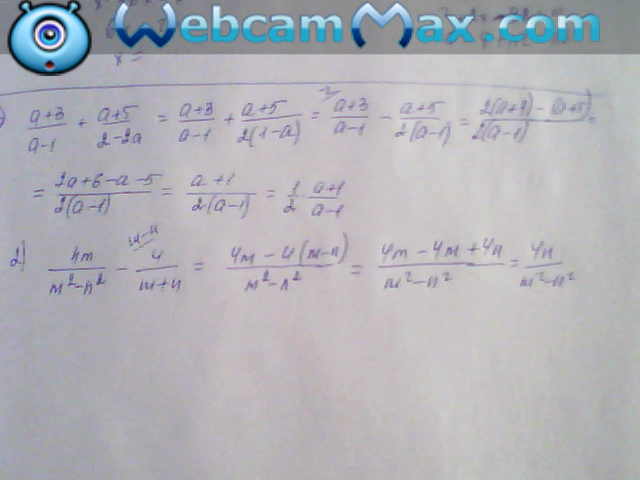 WebcamMax.com
x =
a+3/a-1 + a+5/2-2a = a+3/a-1 + a+5/2(1-a) = a+3/a-1 - a+5/2(a-1) = 2(a+3)-(a+5)/2(a-1) =
= 2a+6-a-5/2(a-1) = a+1/2(a-1) = 1/2 · a+1/a-1
2) 4m/m²-n² - 4/m+n = 4m-4(m-n)/m²-n² = 4m-4m+4n/m²-n² = 4n/m²-n²